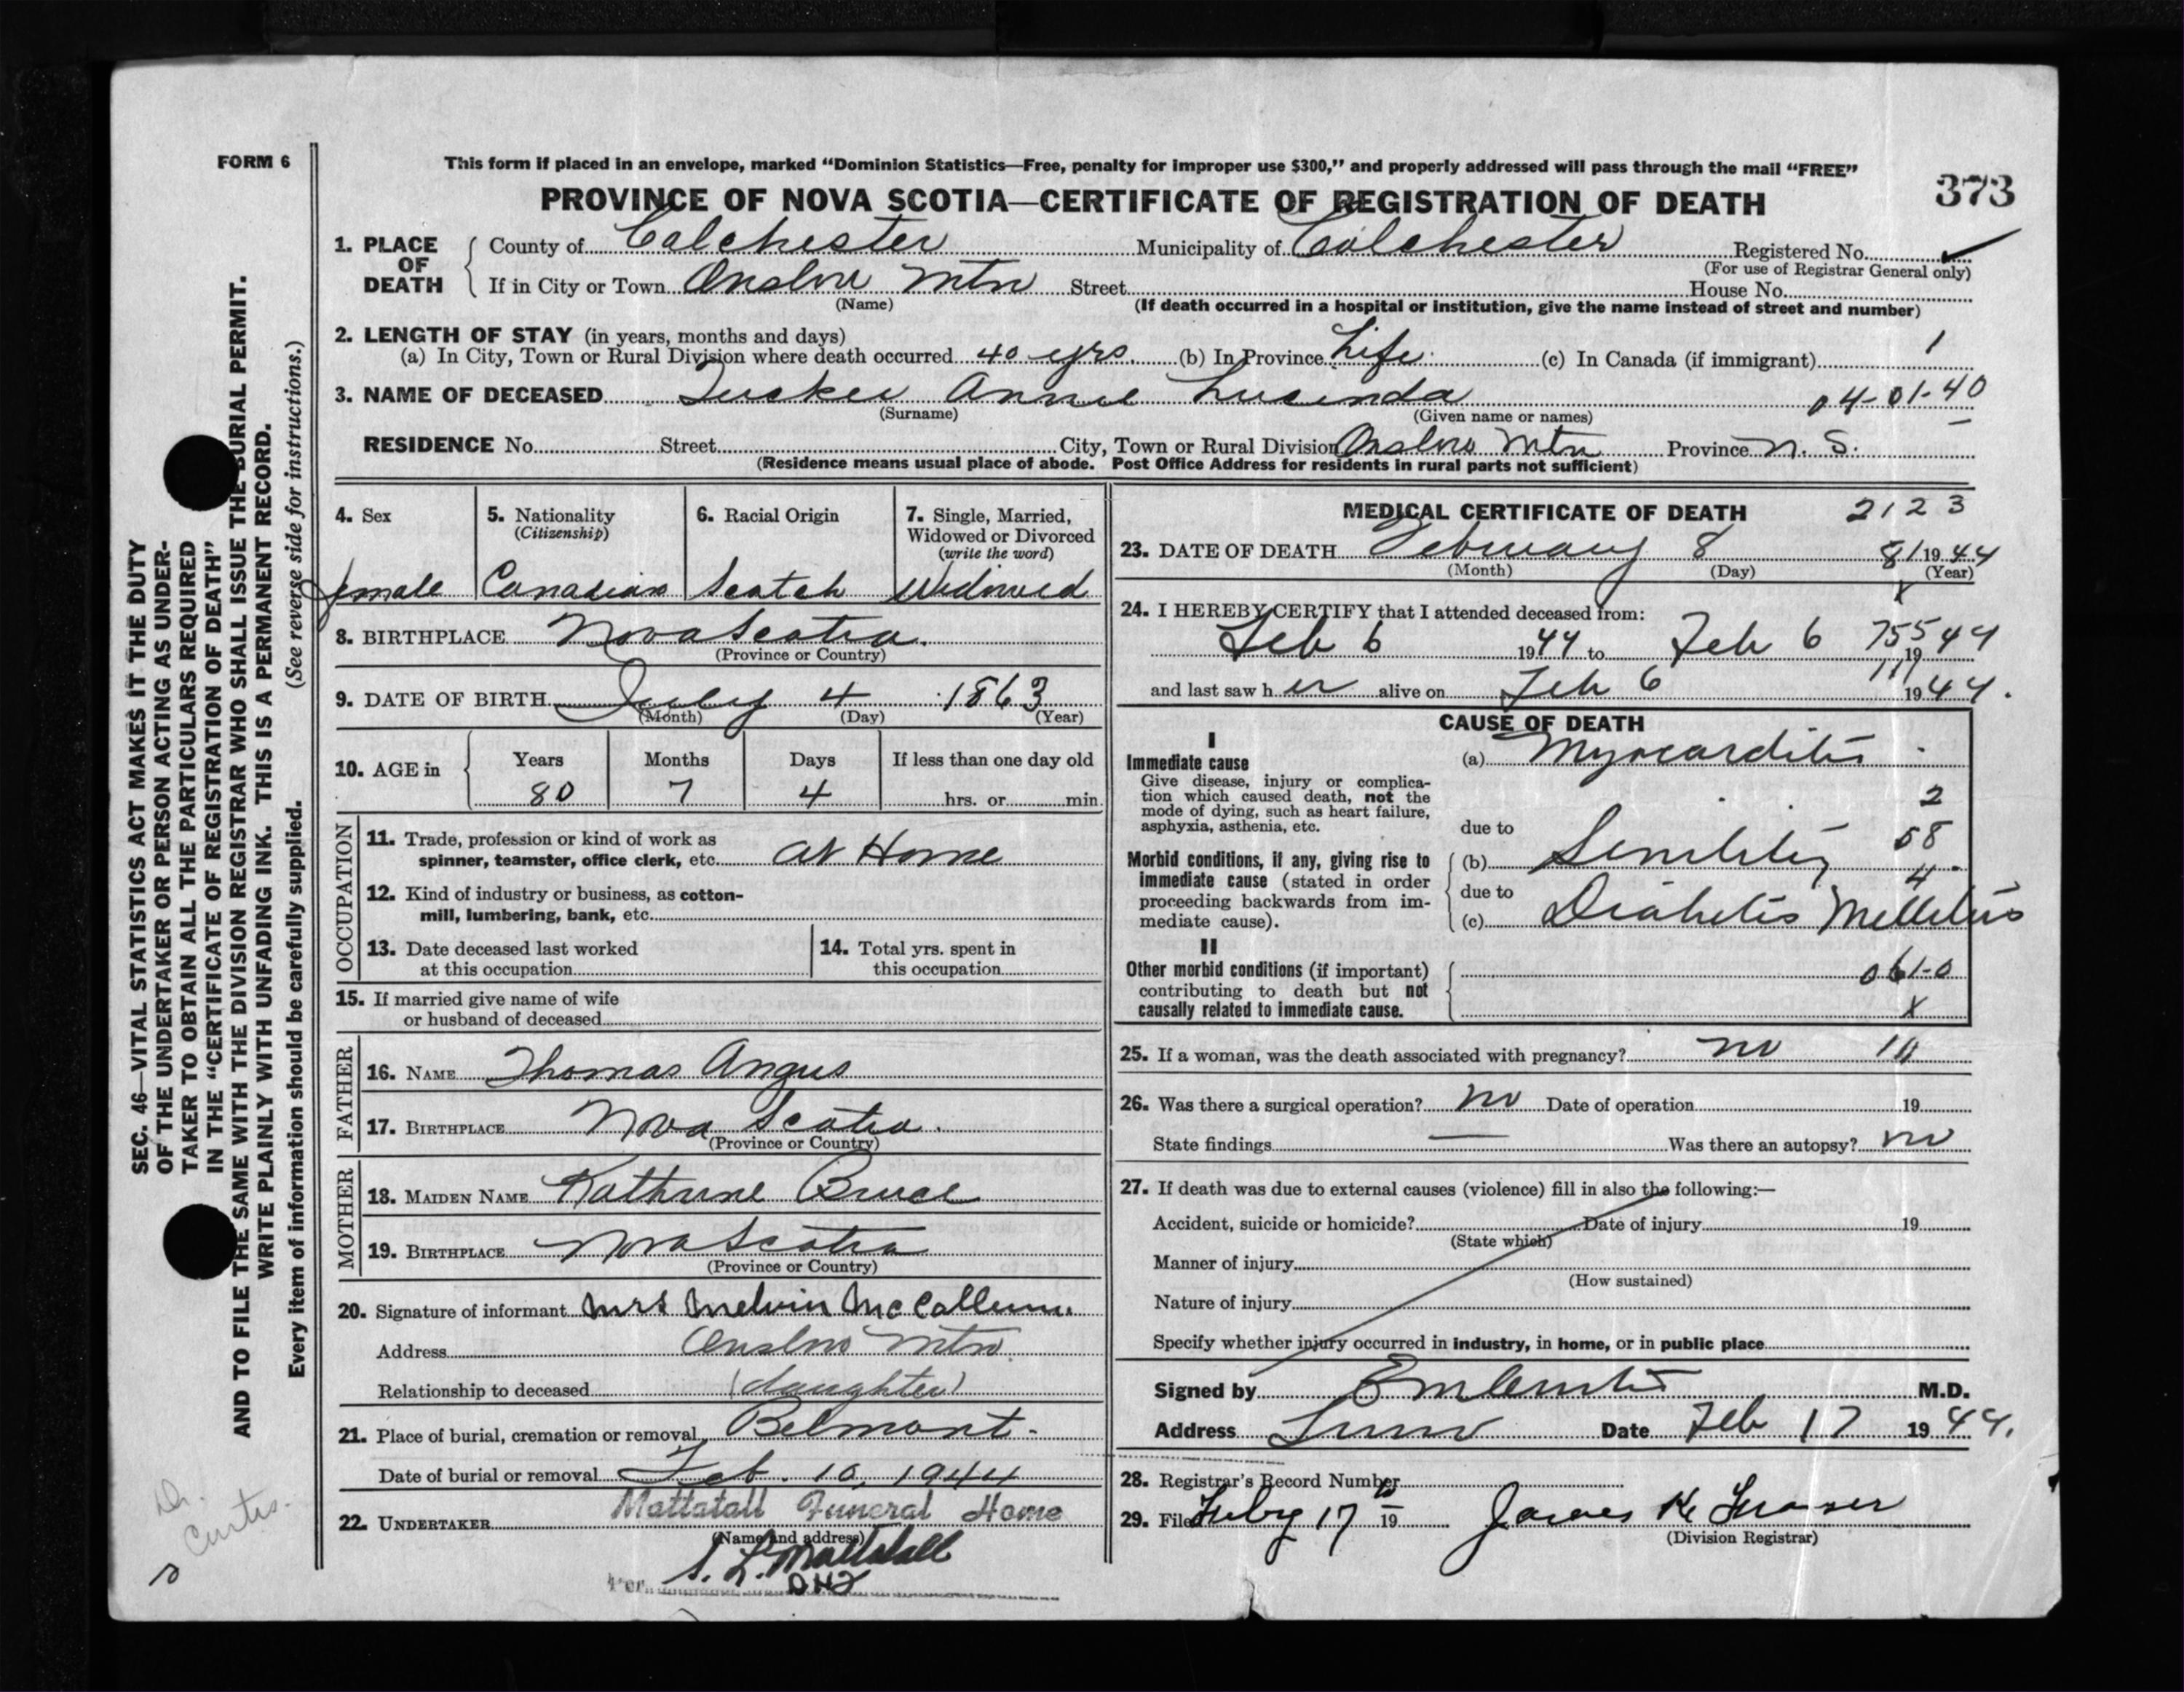 FORM 6
This form if placed in an envelope, marked “Dominion Statistics—Free, penalty for improper use $300,” and properly addressed will pass through the mail “FREE”
PROVINCE OF NOVA SCOTIA—CERTIFICATE OF REGISTRATION OF DEATH
373
1. PLACE OF DEATH County of Colchester Municipality of Colchester Registered No. ✓
(For use of Registrar General only)
If in City or Town Onslow Mtn Street House No.
(Name) (If death occurred in a hospital or institution, give the name instead of street and number)
2. LENGTH OF STAY (in years, months and days)
(a) In City, Town or Rural Division where death occurred 40 yrs. (b) In Province Life. (c) In Canada (if immigrant) 1
3. NAME OF DECEASED Tucker Annie Lucinda 04-01-40
(Surname) (Given name or names)
RESIDENCE No. Street City, Town or Rural Division Onslow Mtn Province N. S.
(Residence means usual place of abode. Post Office Address for residents in rural parts not sufficient)
4. Sex 5. Nationality (Citizenship) 6. Racial Origin 7. Single, Married, Widowed or Divorced (write the word)
female Canadian Scotch Widowed
8. BIRTHPLACE Nova Scotia.
(Province or Country)
9. DATE OF BIRTH July 4 1863
(Month) (Day) (Year)
10. AGE in Years Months Days If less than one day old
80 7 4 hrs. or min.
OCCUPATION
11. Trade, profession or kind of work as
spinner, teamster, office clerk, etc. at Home
12. Kind of industry or business, as cotton-
mill, lumbering, bank, etc.
13. Date deceased last worked
at this occupation
14. Total yrs. spent in
this occupation
15. If married give name of wife
or husband of deceased
FATHER
16. NAME Thomas Angus
17. BIRTHPLACE Nova Scotia.
(Province or Country)
MOTHER
18. MAIDEN NAME Kathrine Bruce
19. BIRTHPLACE Nova Scotia
(Province or Country)
20. Signature of informant Mrs Melvin McCallum.
Address Onslow Mtn.
Relationship to deceased (daughter)
21. Place of burial, cremation or removal Belmont.
Date of burial or removal Feb. 10, 1944
22. UNDERTAKER Mattatall Funeral Home
(Name and address)
Per S. L. Mattatall
MEDICAL CERTIFICATE OF DEATH 2123
23. DATE OF DEATH February 8 81 1944
(Month) (Day) (Year)
X
24. I HEREBY CERTIFY that I attended deceased from:
Feb 6 1944 to Feb 6 755 1944
and last saw her alive on Feb 6 1944.
CAUSE OF DEATH
I
Immediate cause
Give disease, injury or complica-
tion which caused death, not the
mode of dying, such as heart failure,
asphyxia, asthenia, etc.
(a) Myocarditis
2
due to 58
Morbid conditions, if any, giving rise to
immediate cause (stated in order
proceeding backwards from im-
mediate cause).
(b) Senility
4
due to
(c) Diabetis Mellitus
II
Other morbid conditions (if important)
contributing to death but not
causally related to immediate cause.
061-0
X
25. If a woman, was the death associated with pregnancy? no
26. Was there a surgical operation? no Date of operation 19
State findings — Was there an autopsy? no
27. If death was due to external causes (violence) fill in also the following:—
Accident, suicide or homicide? Date of injury 19
(State which)
Manner of injury
(How sustained)
Nature of injury
Specify whether injury occurred in industry, in home, or in public place
Signed by M.D.
Address Truro Date Feb 17 1944.
28. Registrar's Record Number
29. Filed 17 19 James K Fraser
(Division Registrar)
SEC. 46—VITAL STATISTICS ACT MAKES IT THE DUTY
OF THE UNDERTAKER OR PERSON ACTING AS UNDER-
TAKER TO OBTAIN ALL THE PARTICULARS REQUIRED
IN THE “CERTIFICATE OF REGISTRATION OF DEATH”
AND TO FILE THE SAME WITH THE DIVISION REGISTRAR WHO SHALL ISSUE THE BURIAL PERMIT.
WRITE PLAINLY WITH UNFADING INK. THIS IS A PERMANENT RECORD.
Every item of information should be carefully supplied. (See reverse side for instructions.)
Dr. Curtis.